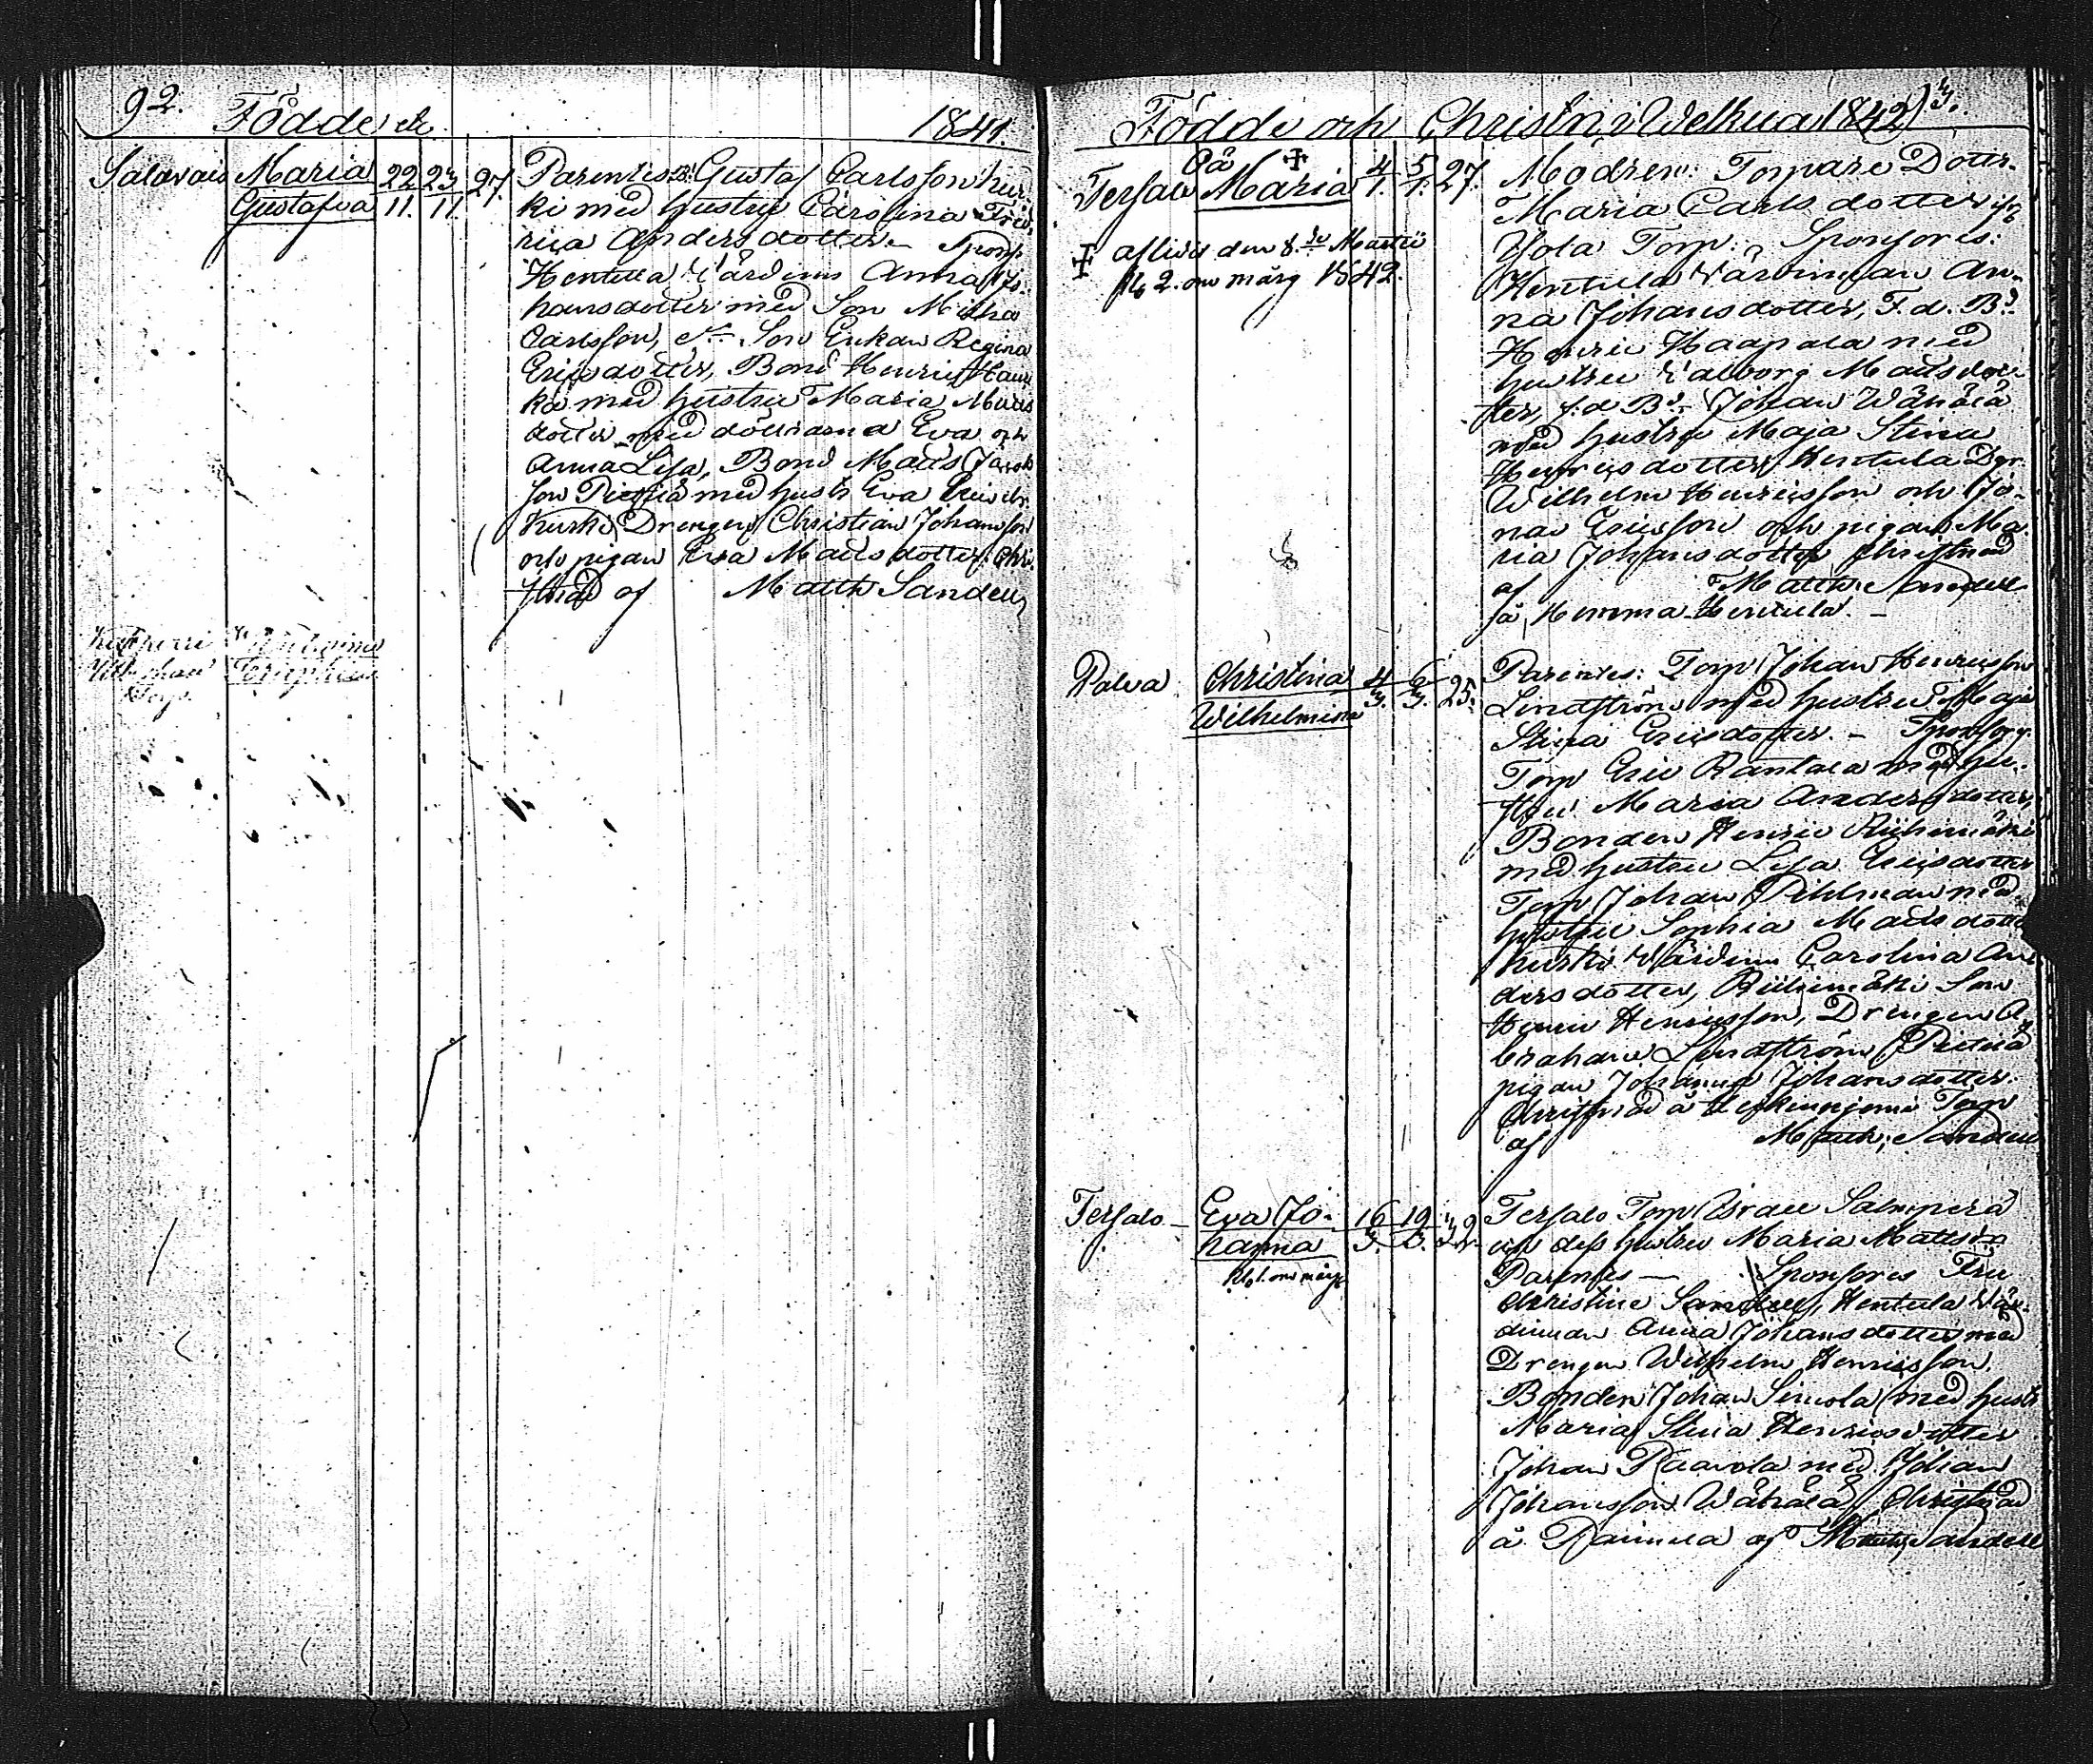 92. Födde etc. 1841.
Salavais Maria 22 23 27. Parentes: B: Gustaf Carlsson Kur
Gustafva 11. 11. ki med hustru Carolina Fred
rica Andersdotter. Spons
Hentula Värdinn Anna Jo-
hansdotter med Son Micha
Carlsson, Son Enkan Regina
Ericsdotter, Bond Henric
ka med hustru Maria Mats
dotter med döttrarna Eva och
Anna Lisa, Bond Matts Jacob
son med hustr Eva
Kurki, Drengen Christian Johansson
och pigan Eva Mattsdotter. Chri
stnad af Matth Sandell
Torp. Josephina
Födde och Christn. i Welkua 1842. 93.
På
Tersalo Maria 4 5 27. Modren: Torpare Dottr.
1. 1. Maria Carlsdotter ifr
Torp. Sponsores:
Hentula Värdinnan An-
na Johansdotter, F. d. Bd.
Henric Haapala med
hustru Valborg Matsdot-
ter, f. d. Bd. Johan Wähälä
med hustru Maja Stina
Henricsdotter, Hentula Dr.
Wilhelm Henricsson och Jo-
nas Ericsson och pigan Ma-
ria Johansdotter Christnad
af Matth: Sandell
på Hemma Hentula.
afled den 8de Martii
kl 2. om morg 1842.
Palva Christina 4 6 25. Parentes: Torp Johan Henricsson
Wilhelmina 3. 3. Lindström med hustru Maja
Stina Ericsdotter. - Sponsor:
Torp Eric Rantala med hu-
stru Maria Andersdotter,
Bonden Henric Riihimäki
med hustru Lisa Ericsdotter
Torp Johan Pihlman med
hustru Sophia Mattsdotter
Kurki Värdinn Carolina An
dersdotter, Riihimäki Son
Henric Henricsson, Drengen A
braham Lindström
pigan Johanna Johansdotter.
Christnad å Torp
af Matth: Sandell
Tersalo Eva Jo- 16 19 32 Tersalo Torp Israel Salmperä
hanna 3. 3. och dess hustru Maria Mattsdr
kl. 1. om morg Parentes — Sponsores Fru
Christine Sandell, Hentula Vär-
dinnan Anna Johansdotter med
Drengen Wilhelm Henricsson,
Bonden Johan Simola med hustr
Maria Stina Henricsdotter
Johan Paavola med Johan
Johansson Wähälä, Christnad
å Daimela af Matth, Sandell